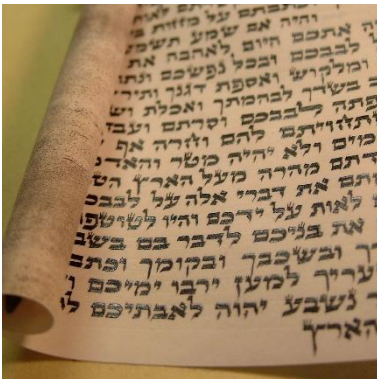 וכתבתם על מזזות
והיה אם שמע תשמע
אתכם היום לאהבה את
לבבכם ובכל נפשכם ונתת
ומלקוש ואספת דגנך ותיר
בשדך לבהמתך ואכלת וש
יפתה לבבכם וסרתם ועבד
השתחויתם להם וחרה אף
שמים ולא יהיה מטר והאד
בדתם מהרה מעל הארץ הט
תם את דברי אלה על לבבכ
לאות על ידכם והיו לטוטפ
את בניכם לדבר בם בשב
ך ובשכבך ובקומך וכתב
עריך למען ירבו ימיכם ו
ר נשבע יהוה לאבתיכם ל
הארץ